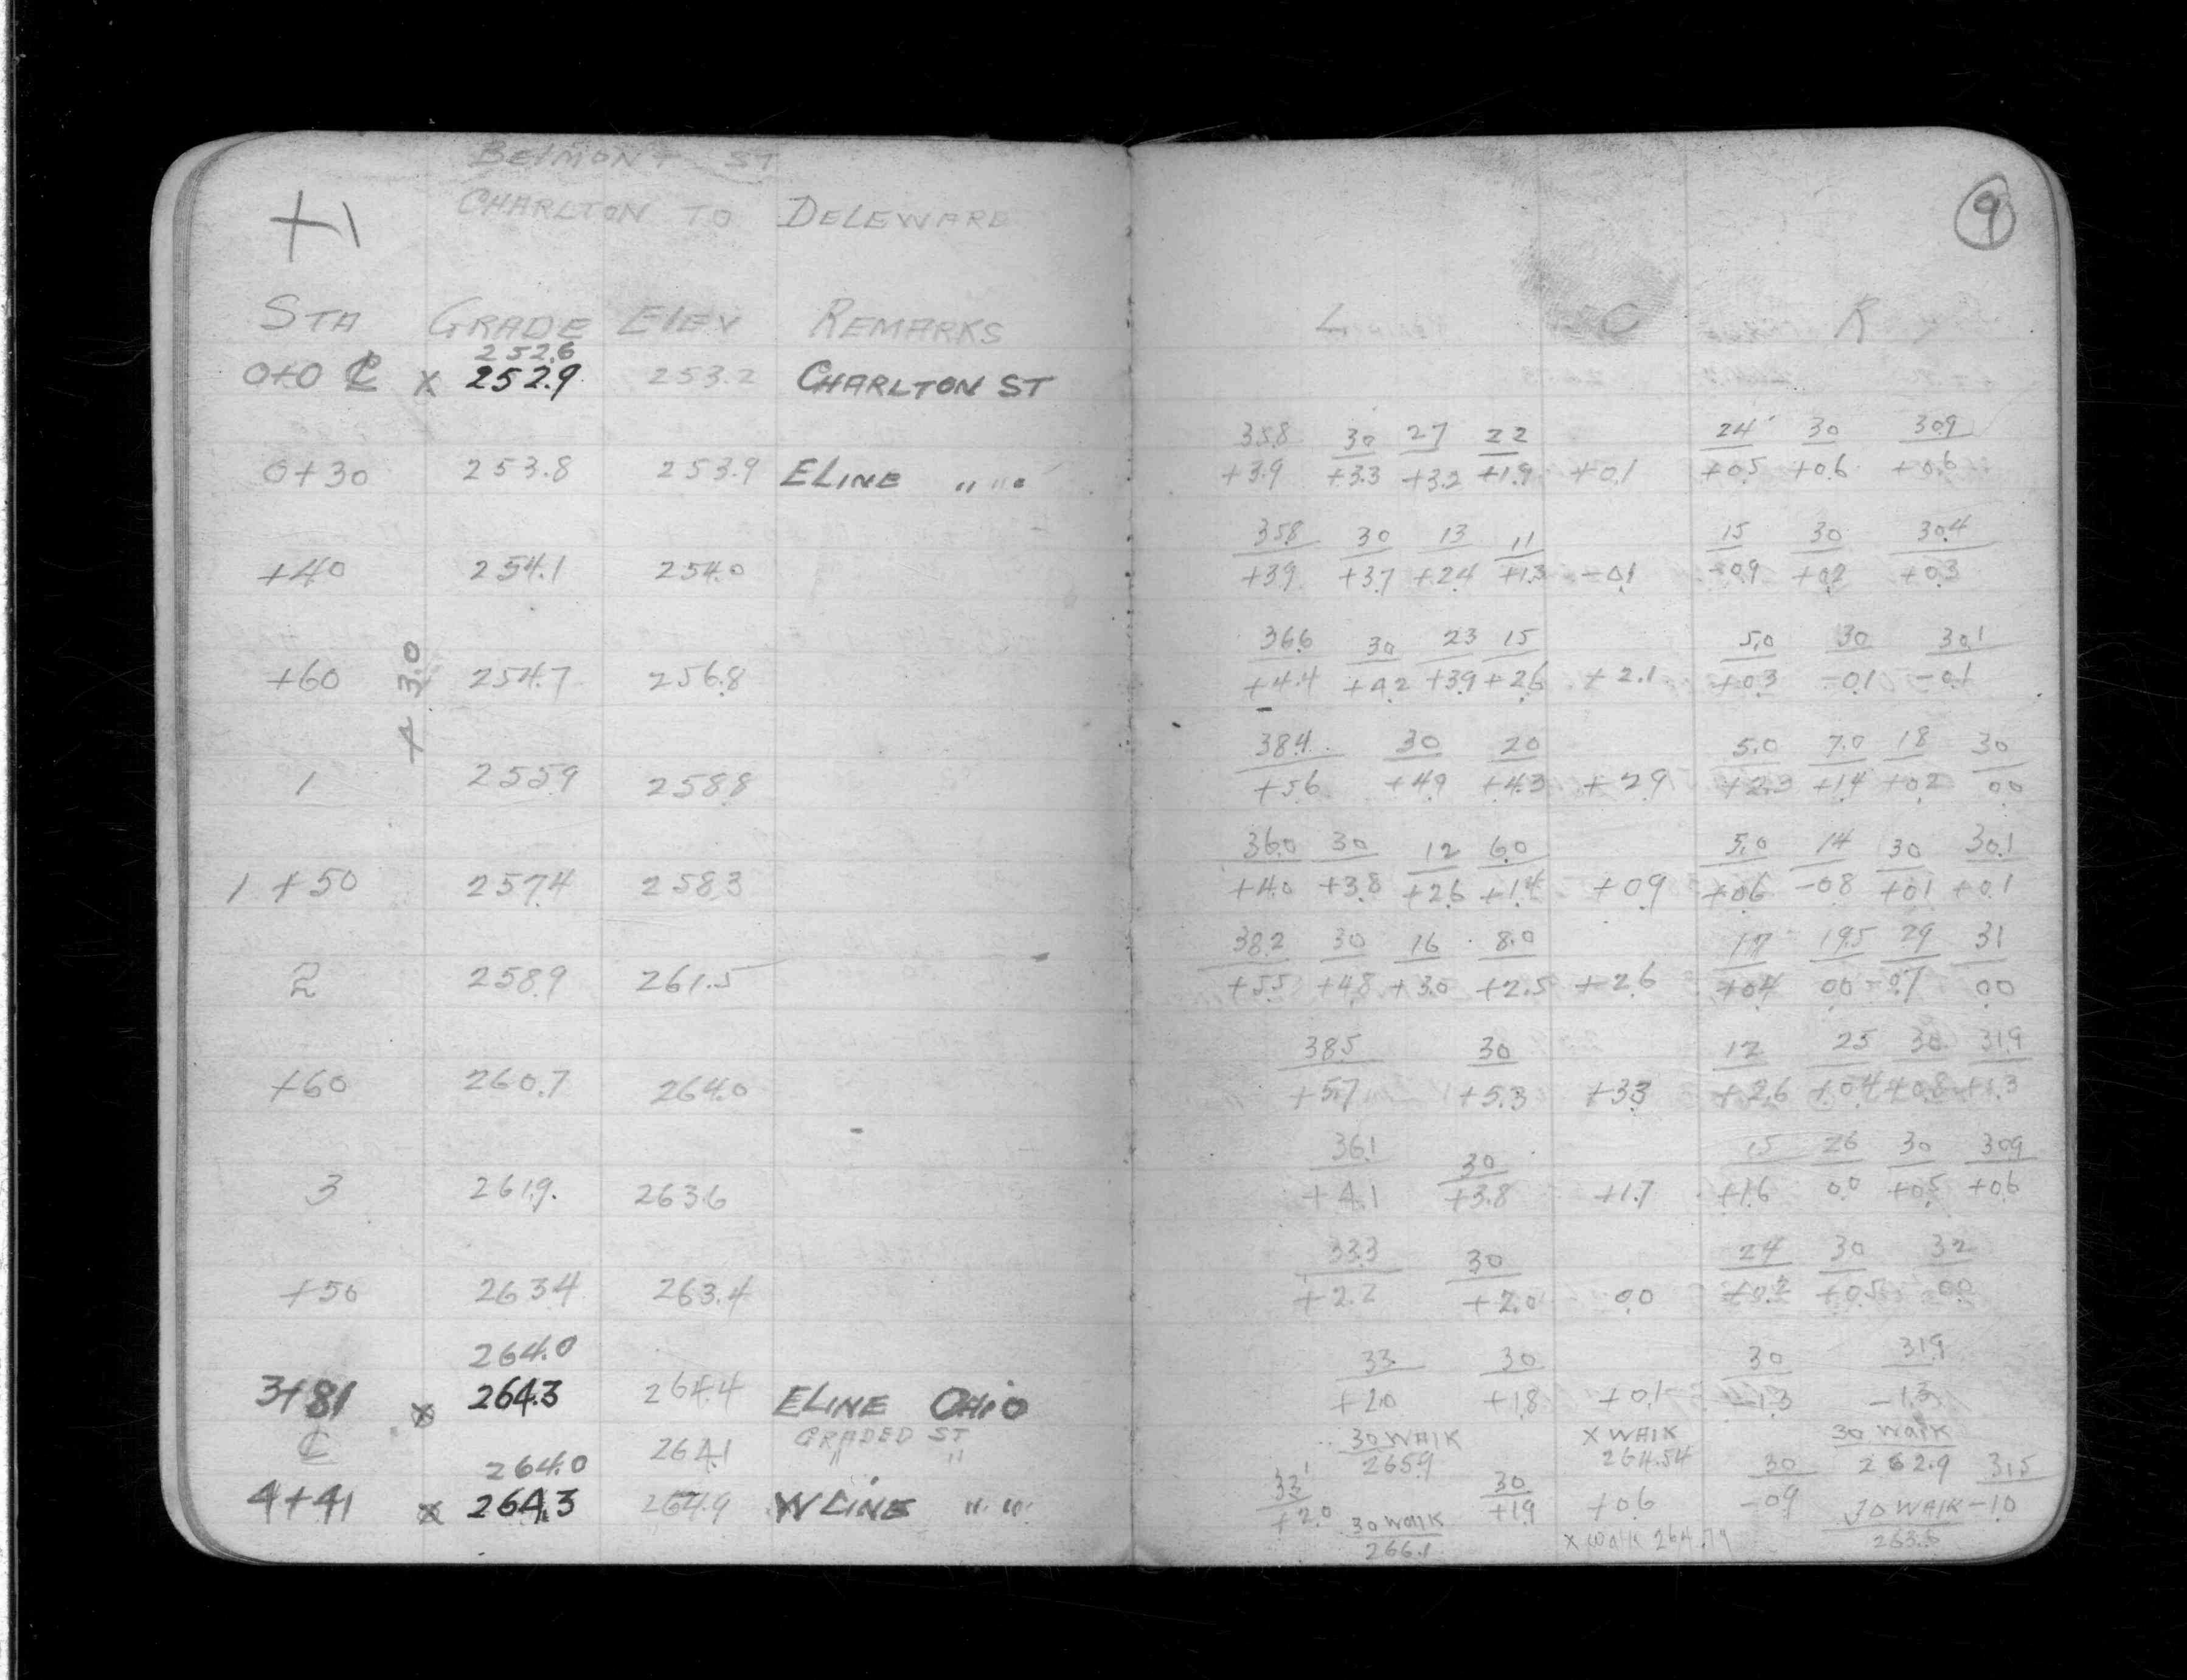 BELMONT ST
+1 CHARLTON TO DELEWARE
STA GRADE ELEV REMARKS
252.6
0+0 ℄ x 252.9 253.2 CHARLTON ST
0+30 253.8 253.9 E LINE " "
+40 254.1 254.0
+ 3.0
+60 254.7 256.8
1 255.9 258.8
1+50 257.4 258.3
2 258.9 261.5
+60 260.7 264.0
3 261.9 263.6
+50 263.4 263.4
264.0
3+81 x 264.3 264.4 E LINE OHIO
GRADED ST
℄ 264.1 " "
264.0
4+41 x 264.3 264.9 W LINE " "
9
L C R
35.8 30 27 22 24 30 30.9
+3.9 +3.3 +3.2 +1.9 +0.1 +0.5 +0.6 +0.6
35.8 30 13 11 15 30 30.4
+3.9 +3.7 +2.4 +1.3 -0.1 -0.9 +0.2 +0.3
36.6 30 23 15 5.0 30 30.1
+4.4 +4.2 +3.9 +2.6 +2.1 +0.3 -0.1 -0.1
38.4 30 20 5.0 7.0 18 30
+5.6 +4.9 +4.3 +2.9 +2.3 +1.4 +0.2 0.0
36.0 30 12 6.0 5.0 14 30 30.1
+4.0 +3.8 +2.6 +1.4 +0.9 +0.6 -0.8 +0.1 +0.1
38.2 30 16 8.0 17 19.5 29 31
+5.5 +4.8 +3.0 +2.5 +2.6 +0.4 0.0 0.0
38.5 30 12 25 30 31.9
+5.7 +5.3 +3.3 +2.6 +0.4 +0.8 +1.3
36.1 30 15 26 30 30.9
+4.1 +3.8 +1.7 +1.6 0.0 +0.5 +0.6
33.3 30 24 30 32
+2.2 +2.0 0.0 +0.2 +0.5 0.0
33 30 30 31.9
+2.0 +1.8 +0.1 -1.3 -1.3
30 WALK X WALK 30 WALK
265.9 264.54 262.9
33 30 30 31.5
+2.0 +1.9 +0.6 -0.9 -1.0
30 WALK X WALK 264.79 30 WALK
266.1